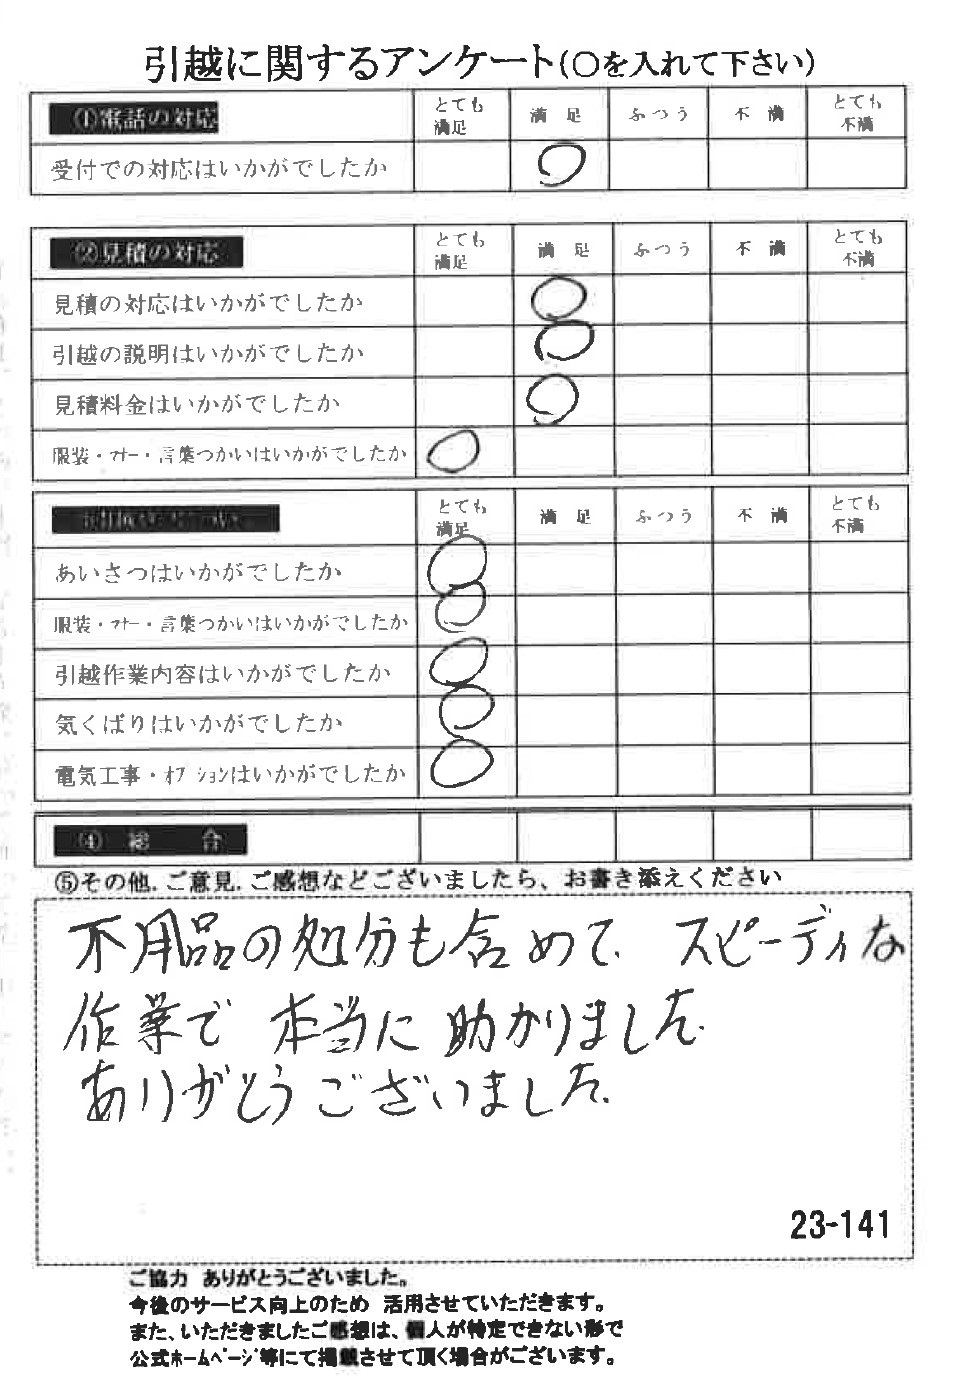 引越に関するアンケート(〇を入れて下さい)
①電話の対応 とても満足 満足 ふつう 不満 とても不満
受付での対応はいかがでしたか
②見積の対応 とても満足 満足 ふつう 不満 とても不満
見積の対応はいかがでしたか
引越の説明はいかがでしたか
見積料金はいかがでしたか
服装・マナー・言葉つかいはいかがでしたか
とても満足 満足 ふつう 不満 とても不満
あいさつはいかがでしたか
服装・マナー・言葉つかいはいかがでしたか
引越作業内容はいかがでしたか
気くばりはいかがでしたか
電気工事・オプションはいかがでしたか
④総合
⑤その他.ご意見.ご感想などございましたら、お書き添えください
不用品の処分も含めて、スピーディな
作業で 本当に 助かりました。
ありがとうございました。
23-141
ご協力 ありがとうございました。
今後のサービス向上のため 活用させていただきます。
また、いただきましたご感想は、個人が特定できない形で
公式ホームページ等にて掲載させて頂く場合がございます。